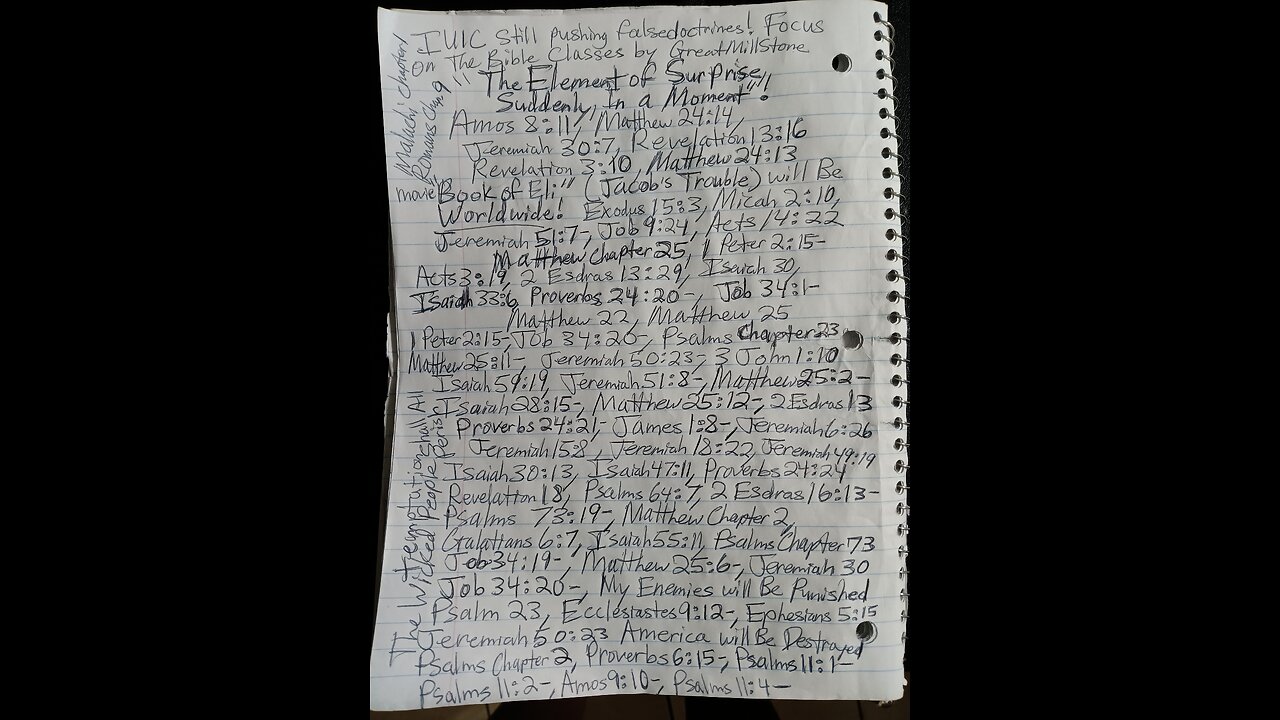 IUIC Still pushing falsedoctrines! Focus
On The Bible Classes by GreatMillStone
"The Element of Surprise,
Suddenly, In a Moment"!
Amos 8:11, Matthew 24:14,
Jeremiah 30:7, Revelation 13:16
Revelation 3:10, Matthew 24:13
movie "Book of Eli" (Jacob's Trouble) will Be
Worldwide! Exodus 15:3, Micah 2:10,
Jeremiah 51:7-, Job 9:24, Acts 14:22
Matthew Chapter 25, 1 Peter 2:15-
Acts 3:19, 2 Esdras 13:29, Isaiah 30,
Isaiah 33:6, Proverbs 24:20-, Job 34:1-
Matthew 22, Matthew 25
1 Peter 2:15-, Job 34:20-, Psalms Chapter 23
Matthew 25:11-, Jeremiah 50:23-, 3 John 1:10
Isaiah 59:19, Jeremiah 51:8-, Matthew 25:2-
Isaiah 28:15-, Matthew 25:12-, 2 Esdras 13
Proverbs 24:21-, James 1:8-, Jeremiah 6:26
Jeremiah 15:8, Jeremiah 18:22, Jeremiah 49:19
Isaiah 30:13, Isaiah 47:11, Proverbs 24:24
Revelation 18, Psalms 64:7, 2 Esdras 16:13-
Psalms 73:19-, Matthew Chapter 2,
Galatians 6:7, Isaiah 55:11, Psalms Chapter 73
Job 34:19-, Matthew 25:6-, Jeremiah 30
Job 34:20-, My Enemies will Be Punished
Psalm 23, Ecclesiastes 9:12-, Ephesians 5:15
Jeremiah 50:23 America will Be Destroyed
Psalms Chapter 2, Proverbs 6:15-, Psalms 11:1-
Psalms 11:2-, Amos 9:10-, Psalms 11:4-
Malachi Chapter 1
Romans Chap. 9
The Wicked People Shall All Perish
Temptation